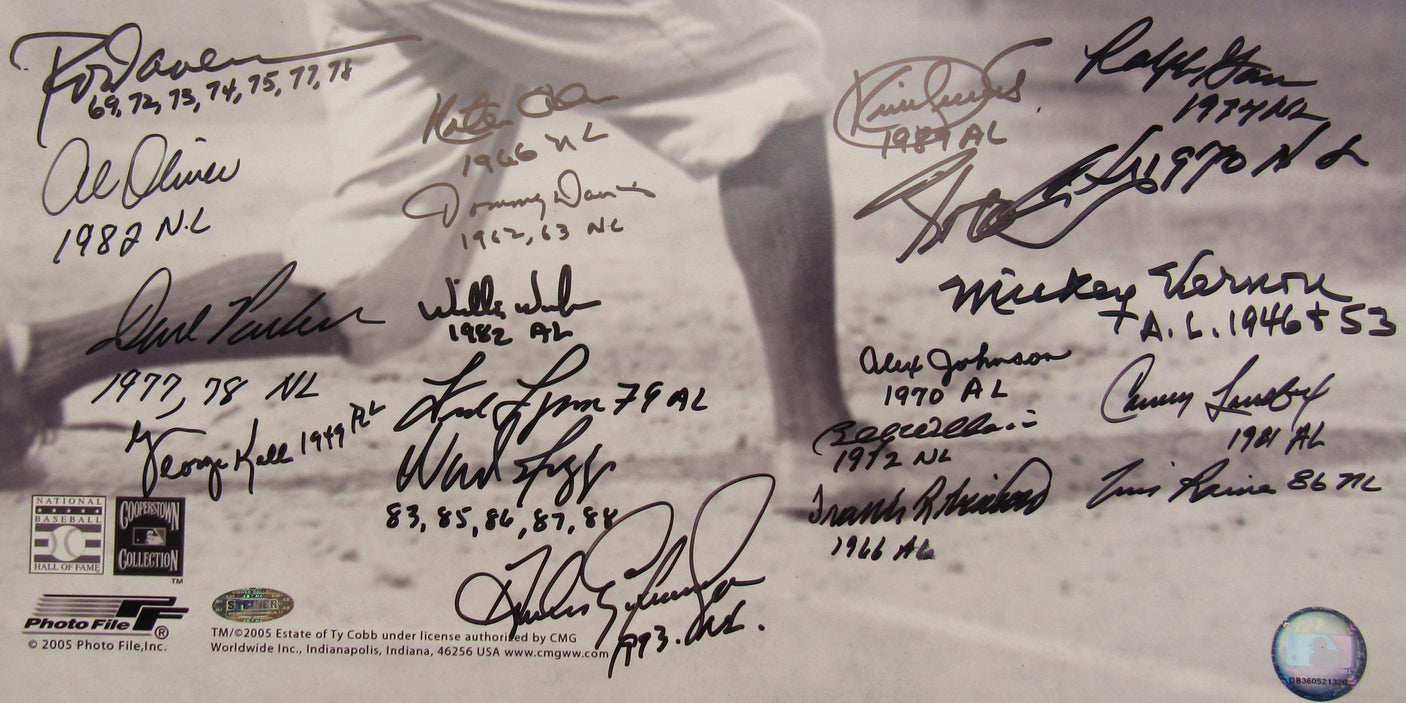 Rod Carew
69, 72, 73, 74, 75, 77, 78
Al Oliver
1982 N.L
Dave Parker
1977, 78 NL
George Kell 1949 AL
1966 NL
Tommy Davis
1962, 63 NL
Willie Wilson
1982 AL
Fred Lynn 79 AL
Wade Boggs
83, 85, 86, 87, 88
1993. NL.
1989 AL
Ralph Garr
1974 NL
1970 N L
Mickey Vernon
A. L. 1946 + 53
Alex Johnson
1970 AL
Billy Williams
1972 NL
Frank Robinson
1966 AL
Carney Lansford
1981 AL
Tim Raines 86 NL
NATIONAL
BASEBALL
HALL OF FAME
COOPERSTOWN
COLLECTION
TM
Photo File ®
© 2005 Photo File, Inc.
STEINER
TM/©2005 Estate of Ty Cobb under license authorized by CMG
Worldwide Inc., Indianapolis, Indiana, 46256 USA www.cmgww.com